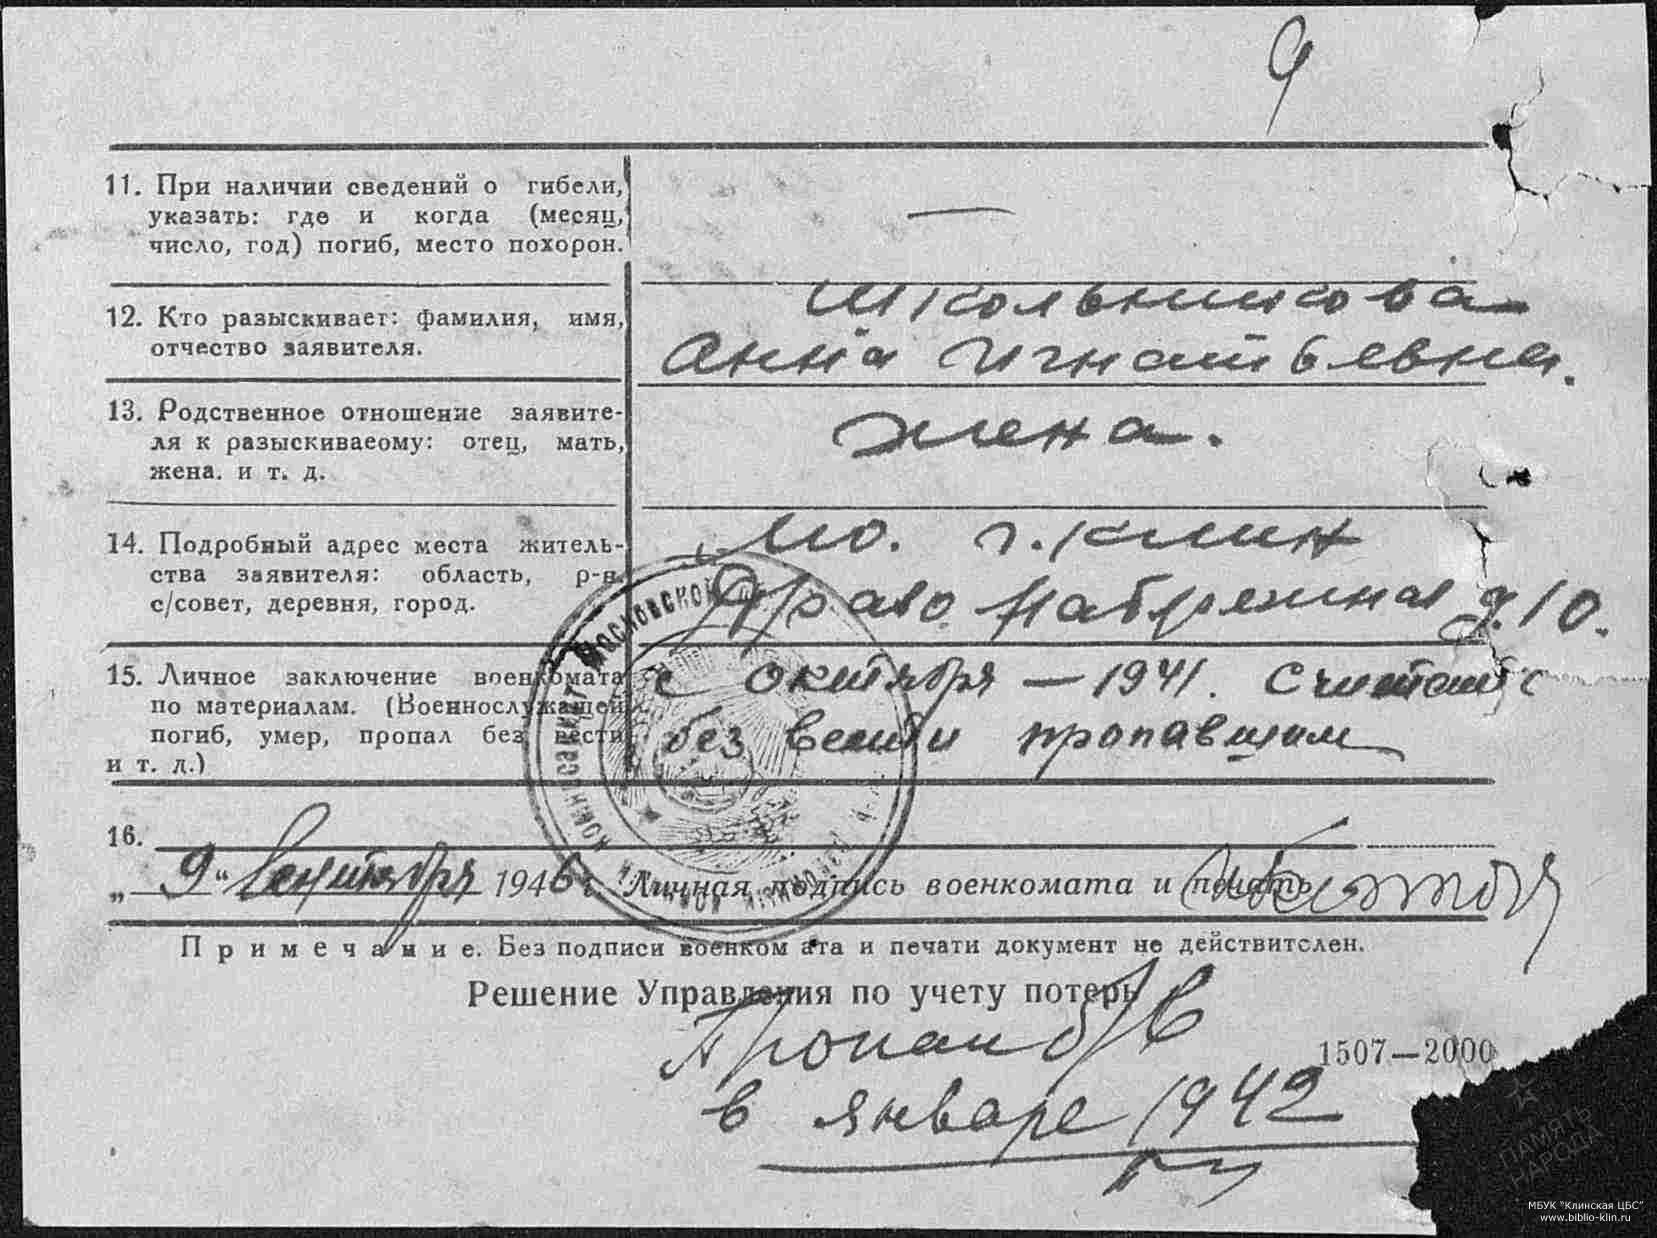 9
11. При наличии сведений о гибели,
указать: где и когда (месяц,
число, год) погиб, место похорон.
—
12. Кто разыскивает: фамилия, имя,
отчество заявителя.
Школьникова
Анна Игнатьевна.
13. Родственное отношение заявите-
ля к разыскиваеому: отец, мать,
жена. и т. д.
жена.
14. Подробный адрес места житель-
ства заявителя: область, р-н,
с/совет, деревня, город.
МО. г. Клин
Право. Набережная д. 10.
15. Личное заключение военкомата
по материалам. (Военнослужащей
погиб, умер, пропал без вести
и т. д.)
с октября — 1941. Считать
без вести пропавшим
16.
„ 9 " Сентября 1946 г. Личная подпись военкомата и печать
МОСКОВСКОЙ
Примечание. Без подписи военком ата и печати документ не действителен.
Решение Управления по учету потерь
Пропал б/в
в январе 1942
1507—2000
ПАМЯТЬ
НАРОДА
МБУК "Клинская ЦБС"
www.biblio-klin.ru